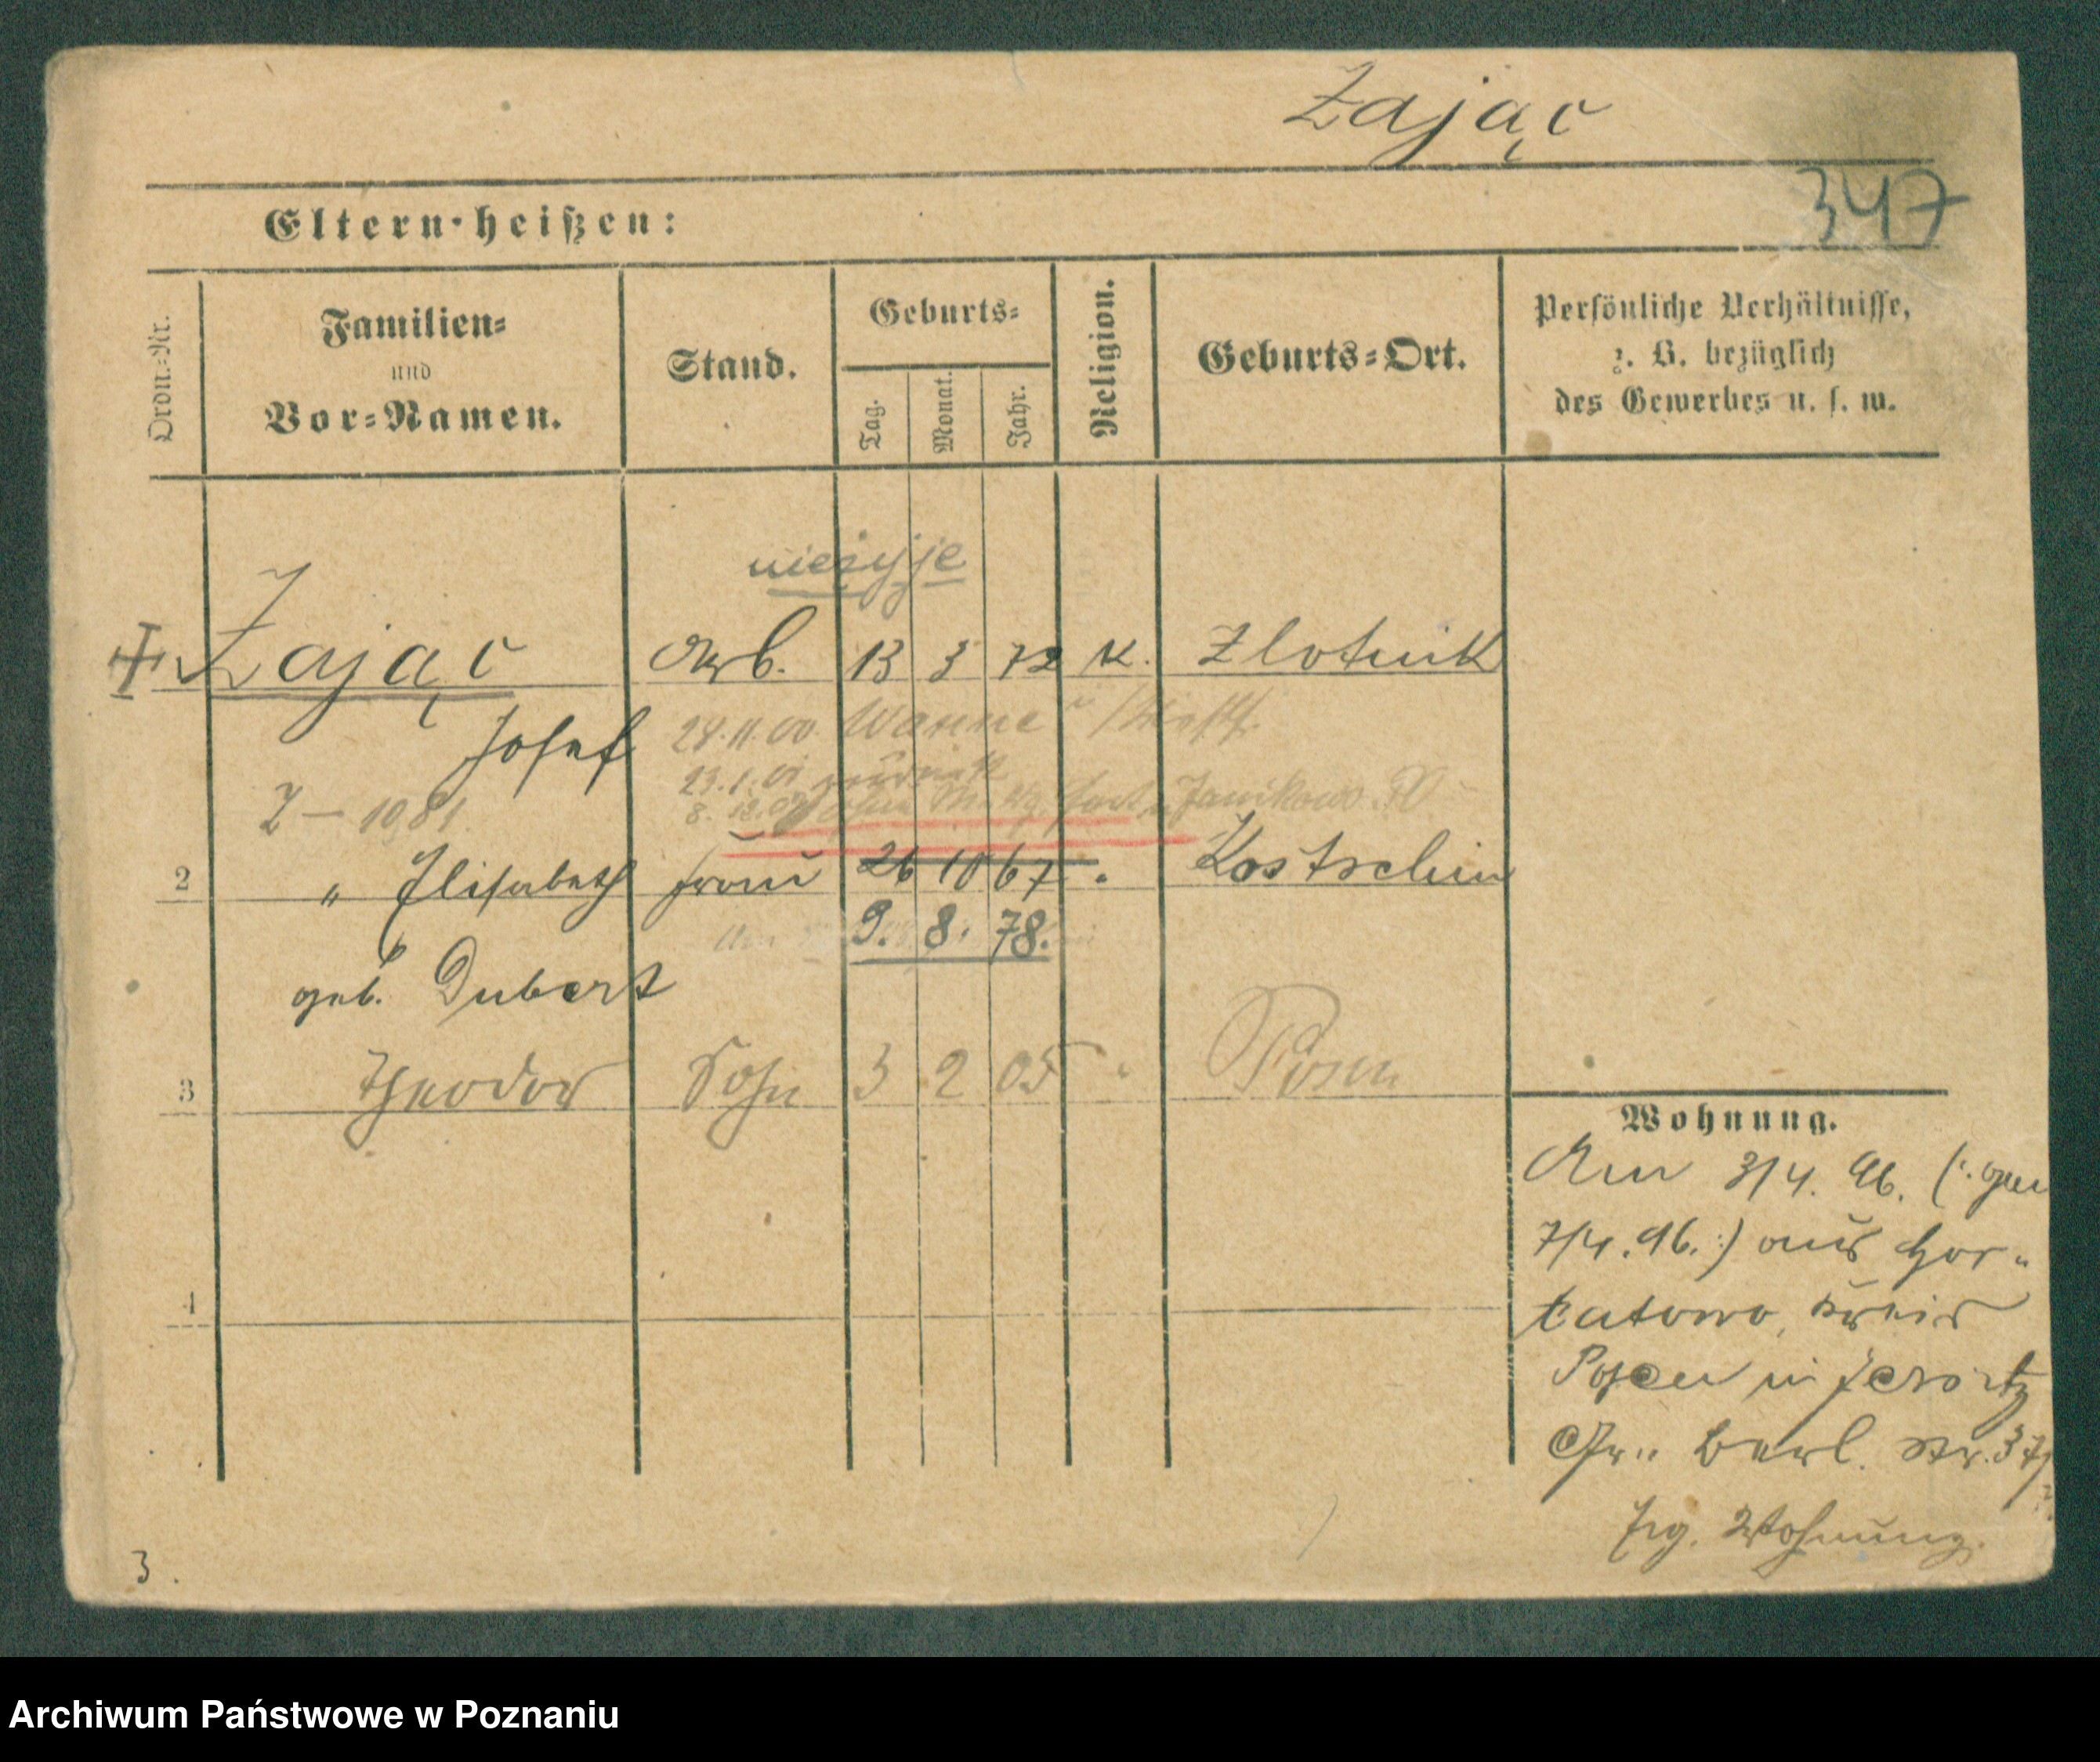 Zając
347
Eltern heißen:
Ordn.-Nr.
Familien-
und
Vor-Namen.
Stand.
Geburts-
Tag.
Monat.
Jahr.
Religion.
Geburts-Ort.
Persönliche Verhältnisse,
z. B. bezüglich
des Gewerbes u. s. w.
nieżyje
Zając Arb. 13 3 72 K. Zlotnik
Josef
24.11.00. Wanne i/Westf.
23.1.01 zurück
8.12.02 Janikowo
Z — 10,81.
2 " Elisabeth Frau 26 10 67 " Kostschin
9. 8. 78.
geb. Dubert
3 Theodor Sohn 3 2 05 " Posen
4
Wohnung.
Am 3/4. 96. (: gem
7/4. 96. :) aus Gor-
tatowo, Kreis
Posen in Jersitz
Gr. Berl. Str. 37
Eig. Wohnung.
3.
Archiwum Państwowe w Poznaniu